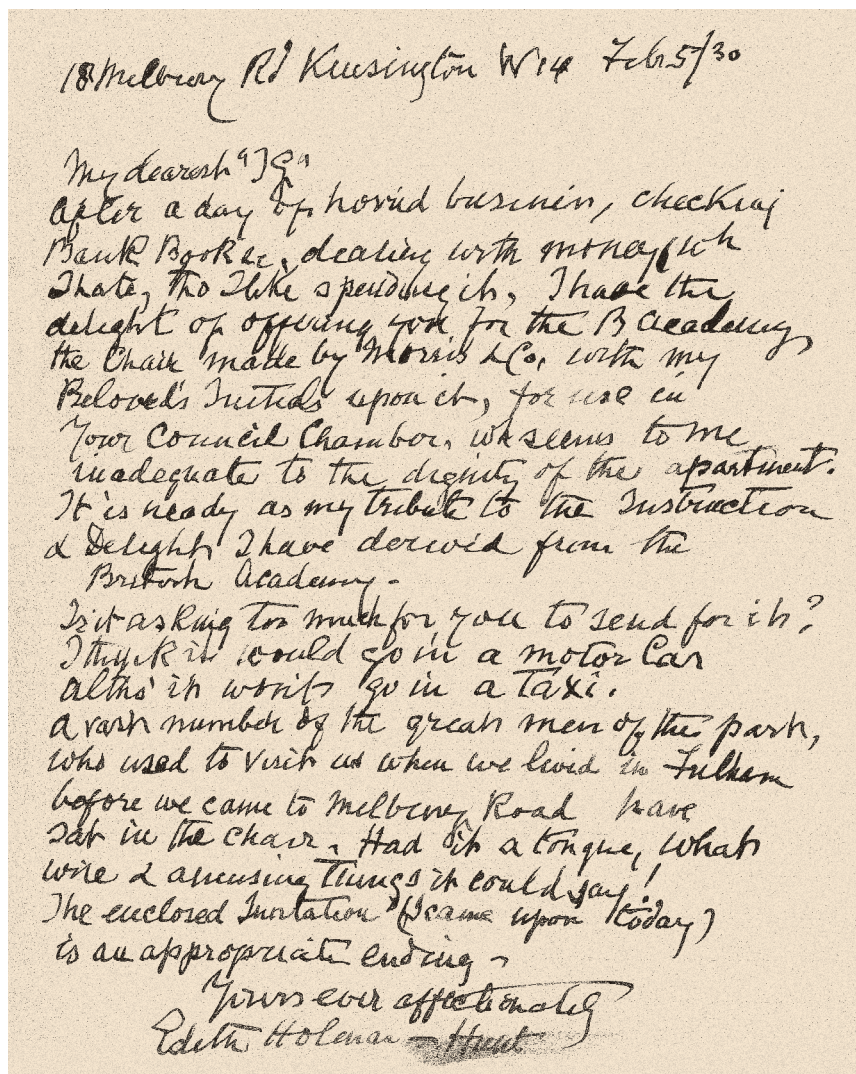 18 Melbury Rd Kensington W14 Feb 5/30
My dearest "I G"
After a day of horrid business, checking
Bank Books &c, dealing with money (wh
I hate, tho I like spending it, I have the
delight of offering you for the B Academy,
the Chair made by Morris & Co, with my
Beloved's Initials upon it, for use in
Your Council Chamber, wh seems to me
inadequate to the dignity of the apartment.
It is ready as my tribute to the Instruction
& Delight I have derived from the
British Academy.-
Is it asking too much for you to send for it?
I think it would go in a motor Car
altho' it won't go in a Taxi.
A vast number of the great men of the past,
who used to visit us when we lived in Fulham
before we came to Melbury Road have
sat in the chair. Had it a tongue, what
wise & amusing things it could say!
The enclosed Invitation (I came upon today)
is an appropriate ending -
Yours ever affectionately
Edith Holman-Hunt